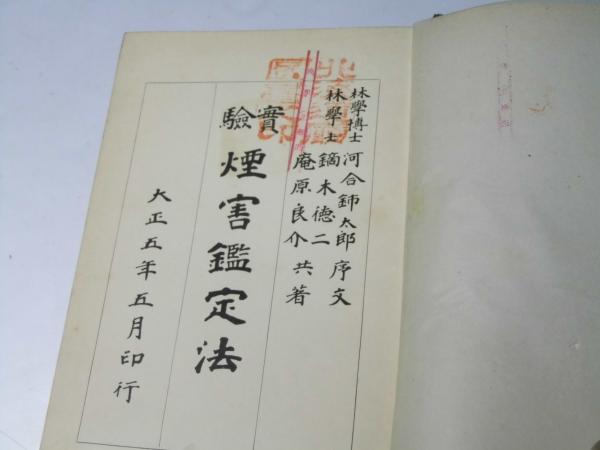 林學博士 河合鈰太郎 序文
林學士 鏑木徳二
庵原良介 共著
實驗
煙害鑑定法
大正五年五月印行